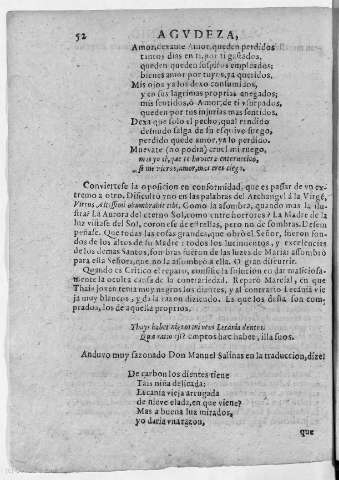 52 AGVDEZA,
Amor, dexame Amor, queden perdidos
tantos dias en ti, por ti gastados,
queden queden suspiros empleados;
bienes amor por tuyos, ya queridos.
Mis ojos ya los dexo consumidos,
y en sus lagrimas proprias anegados;
mis sentidos, ò Amor, de ti vsurpados,
queden por tus injurias mas sentidos.
Dexa que solo el pecho, qual rendido
desnudo salga de su esquivo fuego,
perdido quede amor, ya lo perdido.
Muevate (no podra) cruel mi ruego,
mas yo sè, que te huviera enternecido,
si me vieras, amor, mas eres ciego.
Conviertese la oposicion en conformidad, que es passar de vn ex
tremo a otro. Discurrió vno en las palabras del Archangel à la Virgē,
Virtus Altissimi obumbrabit tibi. Como la asombra, quando mas la ilu
strar? La Aurora del eterno Sol, como entre horrores? La Madre de la
luz vistase del Sol, coronese de estrellas, pero no de sombras. Desem
peñase. Que todas las cosas grandes, que obró el Señor, fueron son-
dos de los altos de su Madre: todos los lucimientos, y excelencias
de los demas Santos, sombras fueron de las luzes de Maria: assombró
para ella Señor, que no la assombró a ella. O gran discurrir.
Quando es Critico el reparo, consiste la solucion en dar maliciosa-
mente la oculta causa de la contrariedad. Reparò Marcial, en que
Thais joven tenia muy negros los dientes, y al contrario Lecania vie
ja muy blancos, y da la razon diziendo. Es que los desta son com-
prados, los de aquella proprios.
Thays habet nigros niveos Lecania dentes.
Quæ ratio est? emptos hæc habet, illa suos.
Anduvo muy sazonado Don Manuel Salinas en la traduccion, dize:
De carbon los dientes tiene
Tais niña delicada;
Lecania vieja arrugada
de nieve elada, en que viene?
Mas a buena luz mirados,
yo daria vna razon,
que